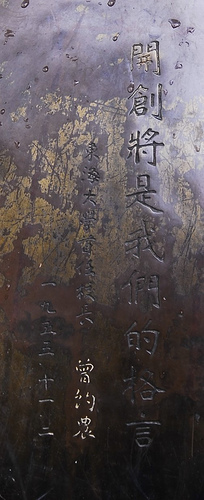 開創將是我們的格言
東海大學首任校長
曾約農
一九五三·十一·二